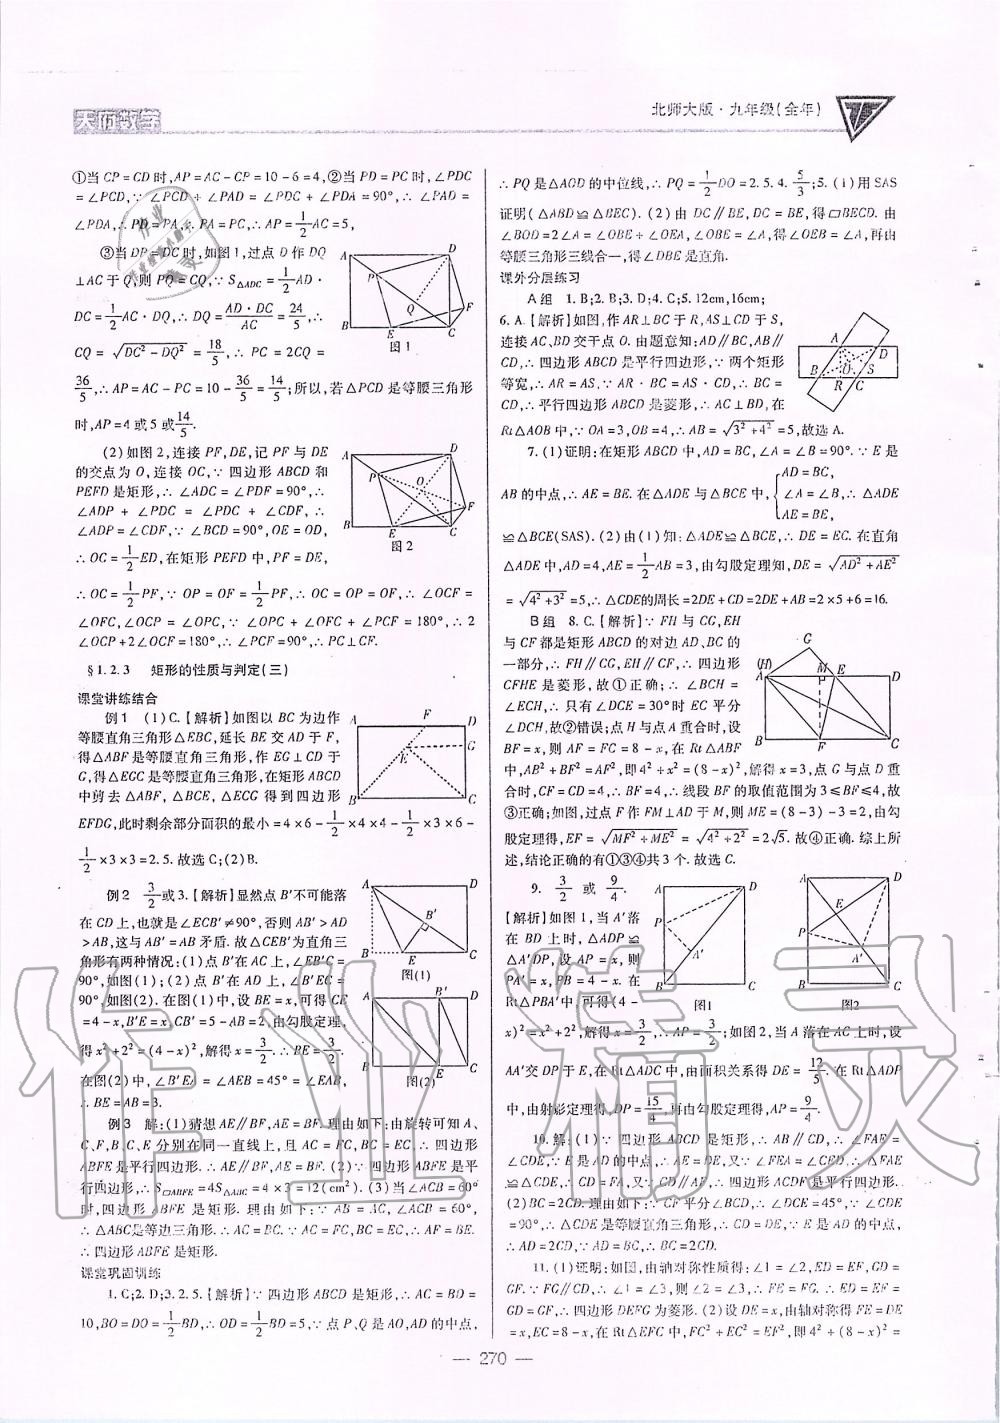 天府数学
北师大版·九年级(全年)
①当 CP=CD 时,AP=AC-CP=10-6=4,②当 PD=PC 时,∠PDC
=∠PCD,∵∠PCD+∠PAD=∠PDC+∠PDA=90°,∴∠PAD=
∠PDA,∴PD=PA,∴PA=PC,∴AP=1/2AC=5,
③当 DP=DC 时,如图1,过点 D 作 DQ
⊥AC 于 Q,则 PQ=CQ,∵S△ADC=1/2AD·
DC=1/2AC·DQ,∴DQ=AD·DC/AC=24/5,∴
CQ=√(DC²-DQ²)=18/5,∴PC=2CQ=
36/5,∴AP=AC-PC=10-36/5=14/5;所以,若△PCD 是等腰三角形
时,AP=4 或 5 或 14/5.
图1
(2)如图2,连接 PF,DE,记 PF 与 DE
的交点为 O,连接 OC,∵四边形 ABCD 和
PEFD 是矩形,∴∠ADC=∠PDF=90°,∴
∠ADP+∠PDC=∠PDC+∠CDF,∴
∠ADP=∠CDF,∵∠BCD=90°,OE=OD,
∴OC=1/2ED,在矩形 PEFD 中,PF=DE,
图2
∴OC=1/2PF,∵OP=OF=1/2PF,∴OC=OP=OF,∴∠OCF
=∠OFC,∠OCP=∠OPC,∵∠OPC+∠OFC+∠PCF=180°,∴2
∠OCP+2∠OCF=180°,∴∠PCF=90°,∴PC⊥CF.
§1.2.3 矩形的性质与判定(三)
课堂讲练结合
例1 (1)C.【解析】如图以 BC 为边作
等腰直角三角形△EBC,延长 BE 交 AD 于 F,
得△ABF 是等腰直角三角形,作 EG⊥CD 于
G,得△EGC 是等腰直角三角形,在矩形 ABCD
中剪去△ABF,△BCE,△ECG 得到四边形
EFDG,此时剩余部分面积的最小=4×6-1/2×4×4-1/2×3×6-
1/2×3×3=2.5.故选 C;(2)B.
例2 3/2或3.【解析】显然点 B′不可能落
在 CD 上,也就是∠ECB′≠90°,否则 AB′>AD
>AB,这与 AB′=AB 矛盾.故△CEB′为直角三
角形有两种情况:(1)点 B′在 AC 上,∠EB′C=
90°,如图(1);(2)点 B′在 AD 上,∠B′EC=
90°,如图(2).在图(1)中,设 BE=x,可得 CE
=4-x,B′E=x,CB′=5-AB=2.由勾股定理,
得 x²+2²=(4-x)²,解得 x=3/2.∴BE=3/2.
在图(2)中,∠B′EA=∠AEB=45°=∠EAB,
∴BE=AB=3.
图(1)
图(2)
例3 解:(1)猜想 AE∥BF,AE=BF.理由如下:由旋转可知 A、
C、F,B、C、E 分别在同一直线上,且 AC=FC,BC=EC,∴四边形
ABFE 是平行四边形.∴AE∥BF,AE=BF.(2)∵四边形 ABFE 是平
行四边形,∴S▱ABFE=4S△ABC=4×3=12(cm²).(3)当∠ACB=60°
时,四边形 ABFE 是矩形.理由如下:∵AB=AC,∠ACB=60°,
∴△ABC是等边三角形.∴AC=BC.∵AC=FC,BC=EC,∴AF=BE.
∴四边形 ABFE 是矩形.
课堂巩固训练
1.C;2.D;3.2.5.【解析】∵四边形 ABCD 是矩形,∴AC=BD=
10,BO=DO=1/2BD,∴OD=1/2BD=5,∵点 P,Q 是 AO,AD 的中点,
∴PQ 是△AOD 的中位线,∴PQ=1/2DO=2.5.4.5/3;5.(1)用SAS
证明(△ABD≌△BEC).(2)由 DC∥BE,DC=BE,得▱BECD.由
∠BOD=2∠A=∠OBE+∠OEA,∠OBE=∠A,得∠OEB=∠A,再由
等腰三角形三线合一,得∠DBE 是直角.
课外分层练习
A组 1.B;2.B;3.D;4.C;5.12cm,16cm;
6.A.【解析】如图,作 AR⊥BC 于 R,AS⊥CD 于 S,
连接 AC、BD 交干点 O.由题意知:AD∥BC,AB∥
CD,∴四边形 ABCD 是平行四边形,∵两个矩形
等宽,∴AR=AS,∵AR·BC=AS·CD,∴BC=
CD,∴平行四边形 ABCD 是菱形,∴AC⊥BD,在
Rt△AOB 中,∵OA=3,OB=4,∴AB=√(3²+4²)=5,故选 A.
7.(1)证明:在矩形 ABCD 中,AD=BC,∠A=∠B=90°.∵E 是
AB 的中点,∴AE=BE.在△ADE 与△BCE 中,{AD=BC,∠A=∠B,AE=BE,∴△ADE
≌△BCE(SAS).(2)由(1)知:△ADE≌△BCE,∴DE=EC.在直角
△ADE 中,AD=4,AE=1/2AB=3,由勾股定理知,DE=√(AD²+AE²)
=√(4²+3²)=5,∴△CDE的周长=2DE+CD=2DE+AB=2×5+6=16.
B组 8.C.【解析】∵FH 与 CG,EH
与 CF 都是矩形 ABCD 的对边 AD、BC 的
一部分,∴FH∥CG,EH∥CF,∴四边形
CFHE 是菱形,故①正确;∴∠BCH=
∠ECH,∴只有∠DCE=30°时 EC 平分
∠DCH,故②错误;点 H 与点 A 重合时,设
BF=x,则 AF=FC=8-x,在 Rt△ABF
中,AB²+BF²=AF²,即4²+x²=(8-x)²,解得 x=3,点 G 与点 D 重
合时,CF=CD=4,∴BF=4,∴线段 BF 的取值范围为 3≤BF≤4,故
③正确;如图,过点 F 作 FM⊥AD 于 M,则 ME=(8-3)-3=2,由勾
股定理得,EF=√(MF²+ME²)=√(4²+2²)=2√5.故④正确.综上所
述,结论正确的有①③④共 3 个.故选 C.
9. 3/2 或 9/4.
【解析】如图1,当 A′落
在 BD 上时,△ADP≌
△A′DP,设 AP=x,则
PA′=x,PB=4-x.在
Rt△PBA′中,可得(4-
图1
图2
x)²=x²+2²,解得 x=3/2,∴AP=3/2;如图2,当 A 落在 AC 上时,设
AA′交 DP 于 E,在 Rt△ADC 中,由面积关系得 DE=12/5.在 Rt△ADP
中,由射影定理得,DP=15/4,再由勾股定理得,AP=9/4.
10.解:(1)∵四边形 ABCD 是矩形,∴AB∥CD,∴∠FAE=
∠CDE,∵E 是 AD 的中点,∴AE=DE,又∵∠FEA=∠CED,∴△FAE
≌△CDE,∴CD=FA,又∵CD∥AF,∴四边形 ACDF 是平行四边形.
(2)BC=2CD.理由如下:∵CF 平分∠BCD,∴∠DCE=45°,∵∠CDE
=90°,∴△CDE 是等腰直角三角形,∴CD=DE,∵E 是 AD 的中点,
∴AD=2CD,∵AD=BC,∴BC=2CD.
11.(1)证明:如图,由轴对称性质得:∠1=∠2,ED=EF,GD=
GF.∵FG∥CD,∴∠1=∠3,则∠2=∠3,∴FE=FG.∴ED=EF=
GD=GF,∴四边形 DEFG 为菱形.(2)设 DE=x,由轴对称得 FE=DE
=x,EC=8-x,在 Rt△EFC 中,FC²+EC²=EF²,即4²+(8-x)²=
— 270 —
作业精灵